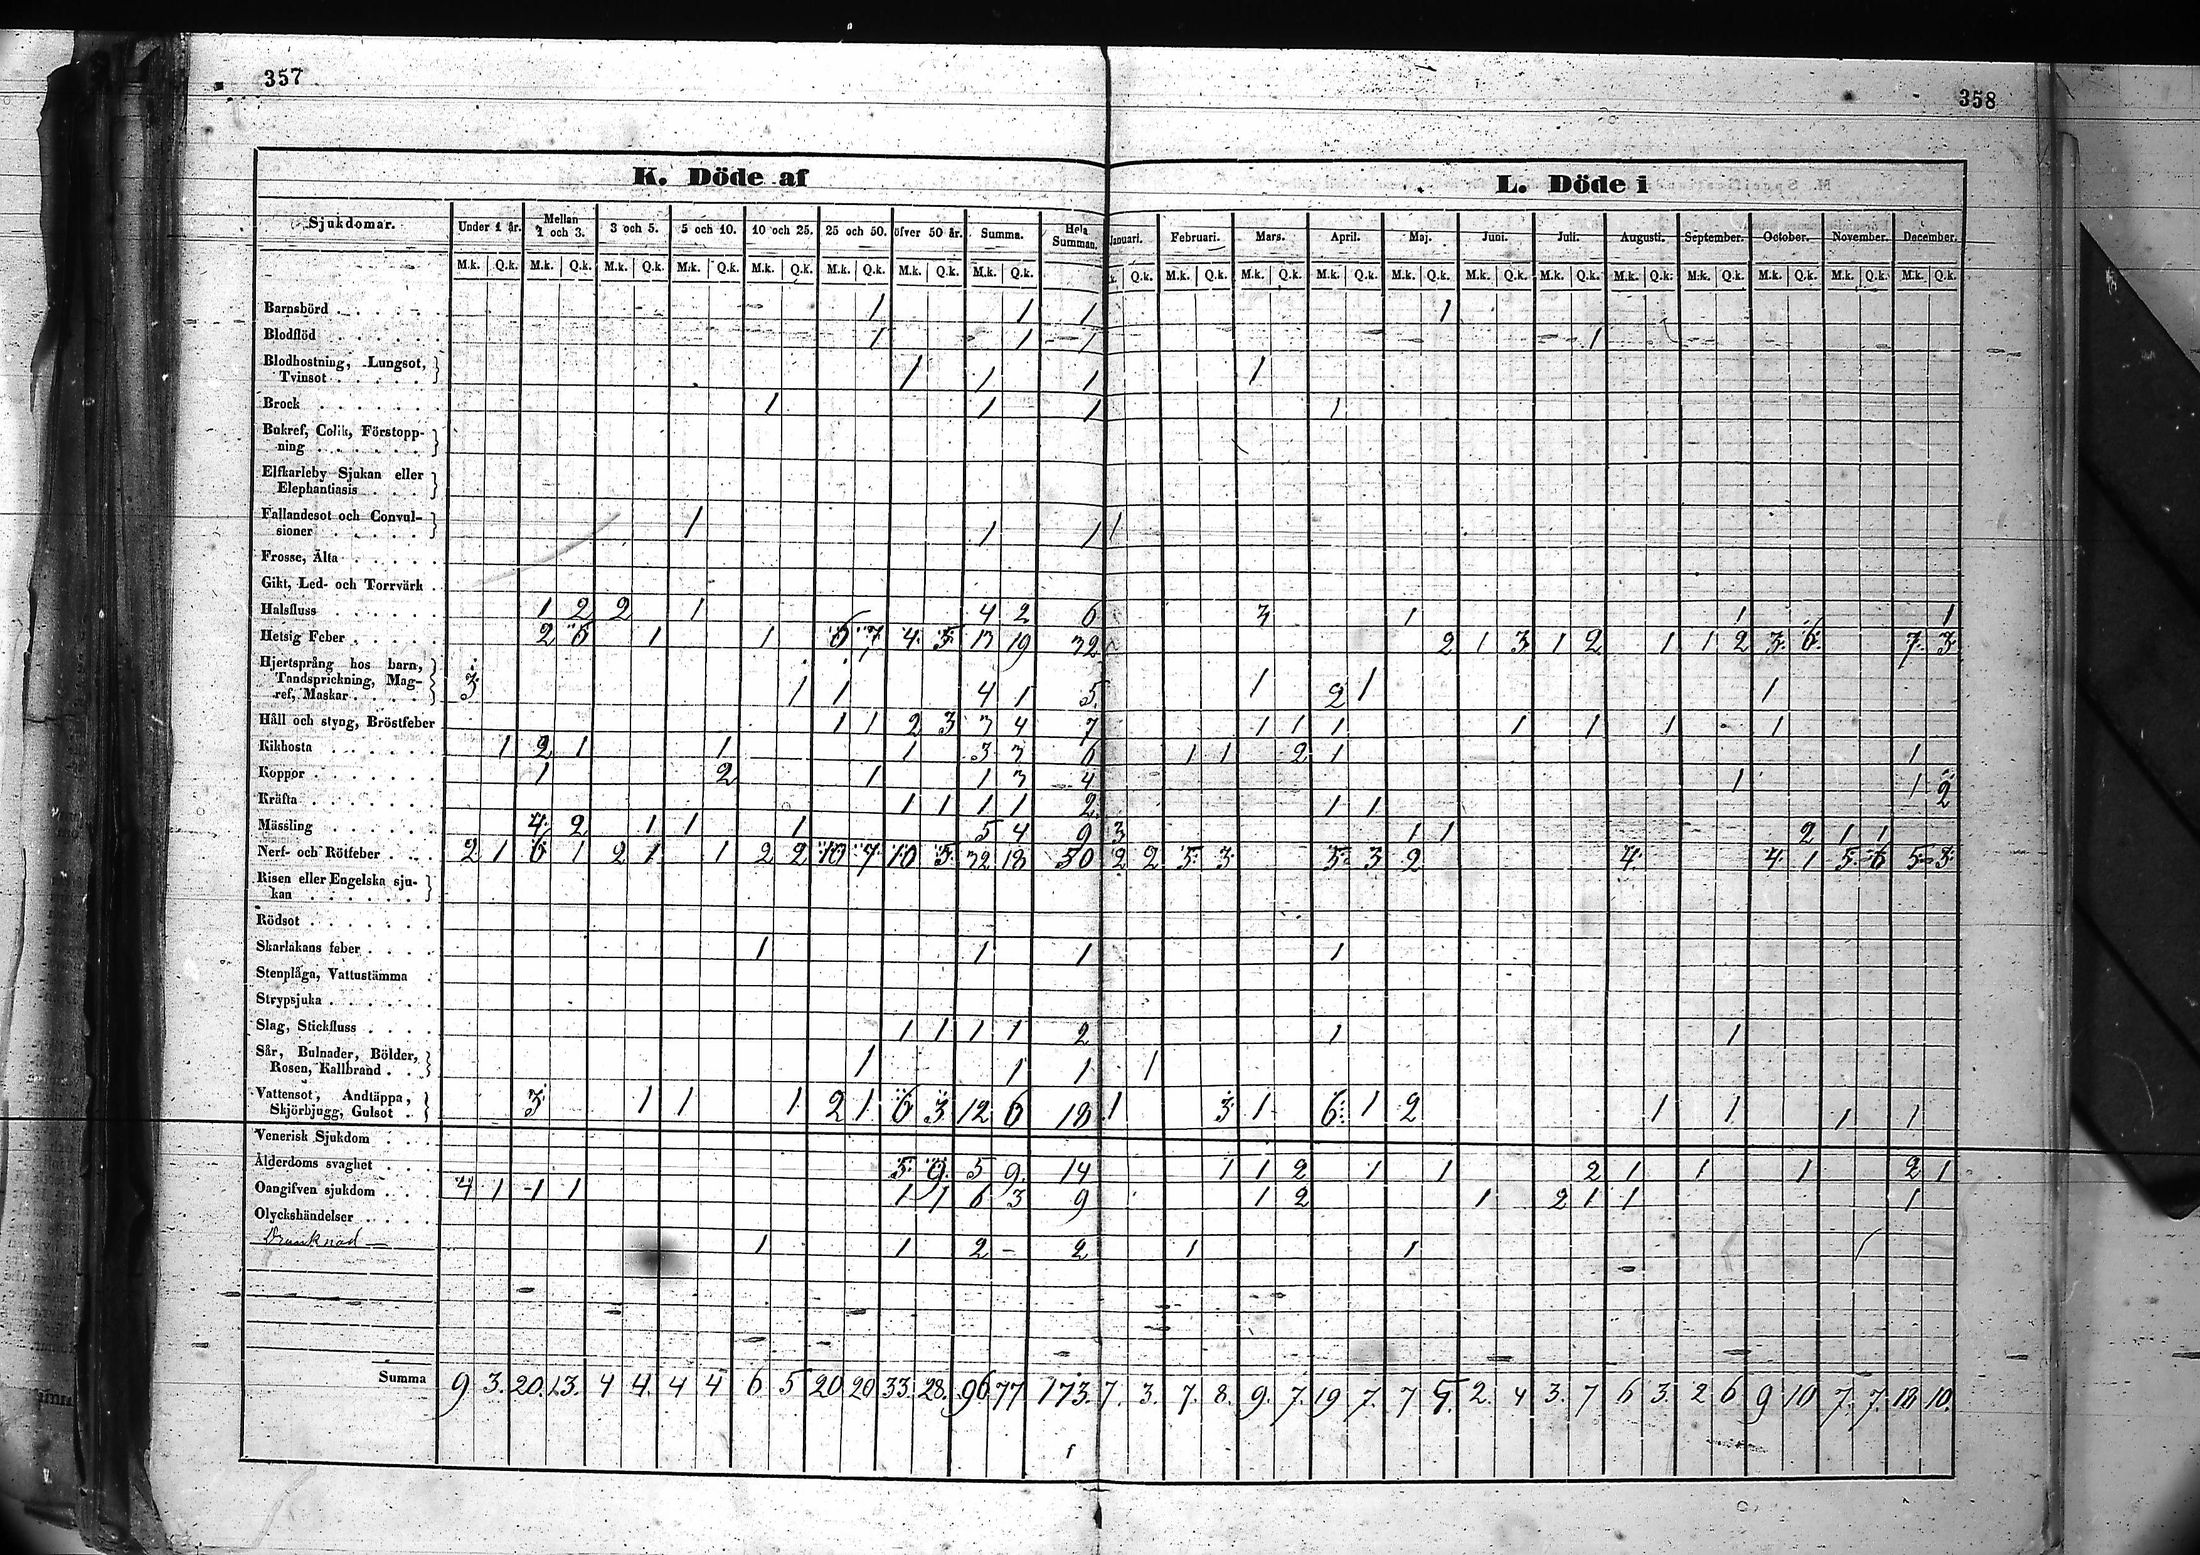 357
358
K. Döde af
L. Döde i
Sjukdomar. Under 1 år. Mellan 1 och 3. 3 och 5. 5 och 10. 10 och 25. 25 och 50. öfver 50 år. Summa. Hela Summan. Januari. Februari. Mars. April. Maj. Juni. Juli. Augusti. September. October. November. December.
M.k. Q.k. M.k. Q.k. M.k. Q.k. M.k. Q.k. M.k. Q.k. M.k. Q.k. M.k. Q.k. M.k. Q.k. Q.k. M.k. Q.k. M.k. Q.k. M.k. Q.k. M.k. Q.k. M.k. Q.k. M.k. Q.k. M.k. Q.k. M.k. Q.k. M.k. Q.k. M.k. Q.k. M.k. Q.k.
Barnsbörd 1 1 1 1
Blodflöd 1 1 1 1
Blodhostning, Lungsot,
Tvinsot 1 1 1 1
Brock 1 1 1 1
Bukref, Colik, Förstopp-
ning
Elfkarleby Sjukan eller
Elephantiasis
Fallandesot och Convul-
sioner 1 1 1 1
Frosse, Älta
Gikt, Led- och Torrvärk
Halsfluss 1 2 2 1 4 2 6 3 1 1 1
Hetsig Feber 2 6 1 1 6 7 4 5 13 19 32 2 1 3 1 2 1 1 2 3 6 7 3
Hjertsprång hos barn,
Tandsprickning, Mag-
ref, Maskar 3 1 1 4 1 5 1 2 1 1
Håll och styng, Bröstfeber 1 1 2 3 3 4 7 1 1 1 1 1 1 1
Kikhosta 1 2 1 1 1 3 3 6 1 1 2 1 1
Koppor 1 2 1 1 3 4 1 1 2
Kräfta 1 1 1 1 2 1 1
Mässling 4 2 1 1 1 5 4 9 3 1 1 2 1 1
Nerf- och Rötfeber 2 1 6 1 2 1 1 2 2 10 7 10 5 32 18 50 2 2 5 3 5 3 2 4 4 1 5 6 5 3
Risen eller Engelska sju-
kan
Rödsot
Skarlakans feber 1 1 1 1
Stenplåga, Vattustämma
Strypsjuka
Slag, Stickfluss 1 1 1 1 2 1 1
Sår, Bulnader, Bölder,
Rosen, Kallbrand 1 1 1 1
Vattensot, Andtäppa,
Skjörbjugg, Gulsot 3 1 1 1 2 1 6 3 12 6 18 1 3 1 6 1 2 1 1 1 1
Venerisk Sjukdom
Ålderdoms svaghet 5 9 5 9 14 1 1 2 1 1 2 1 1 1 2 1
Oangifven sjukdom 4 1 1 1 1 1 6 3 9 1 2 1 2 1 1 1
Olyckshändelser
Drunknad — 1 1 2 - 2 1 1
Summa 9 3. 20. 13. 4 4. 4 4 6 5 20 20 33. 28. 96 77 173. 7. 3. 7. 8. 9. 7. 19 7. 7 5. 2. 4 3. 7 6 3. 2 6 9 10 7. 7. 18 10.